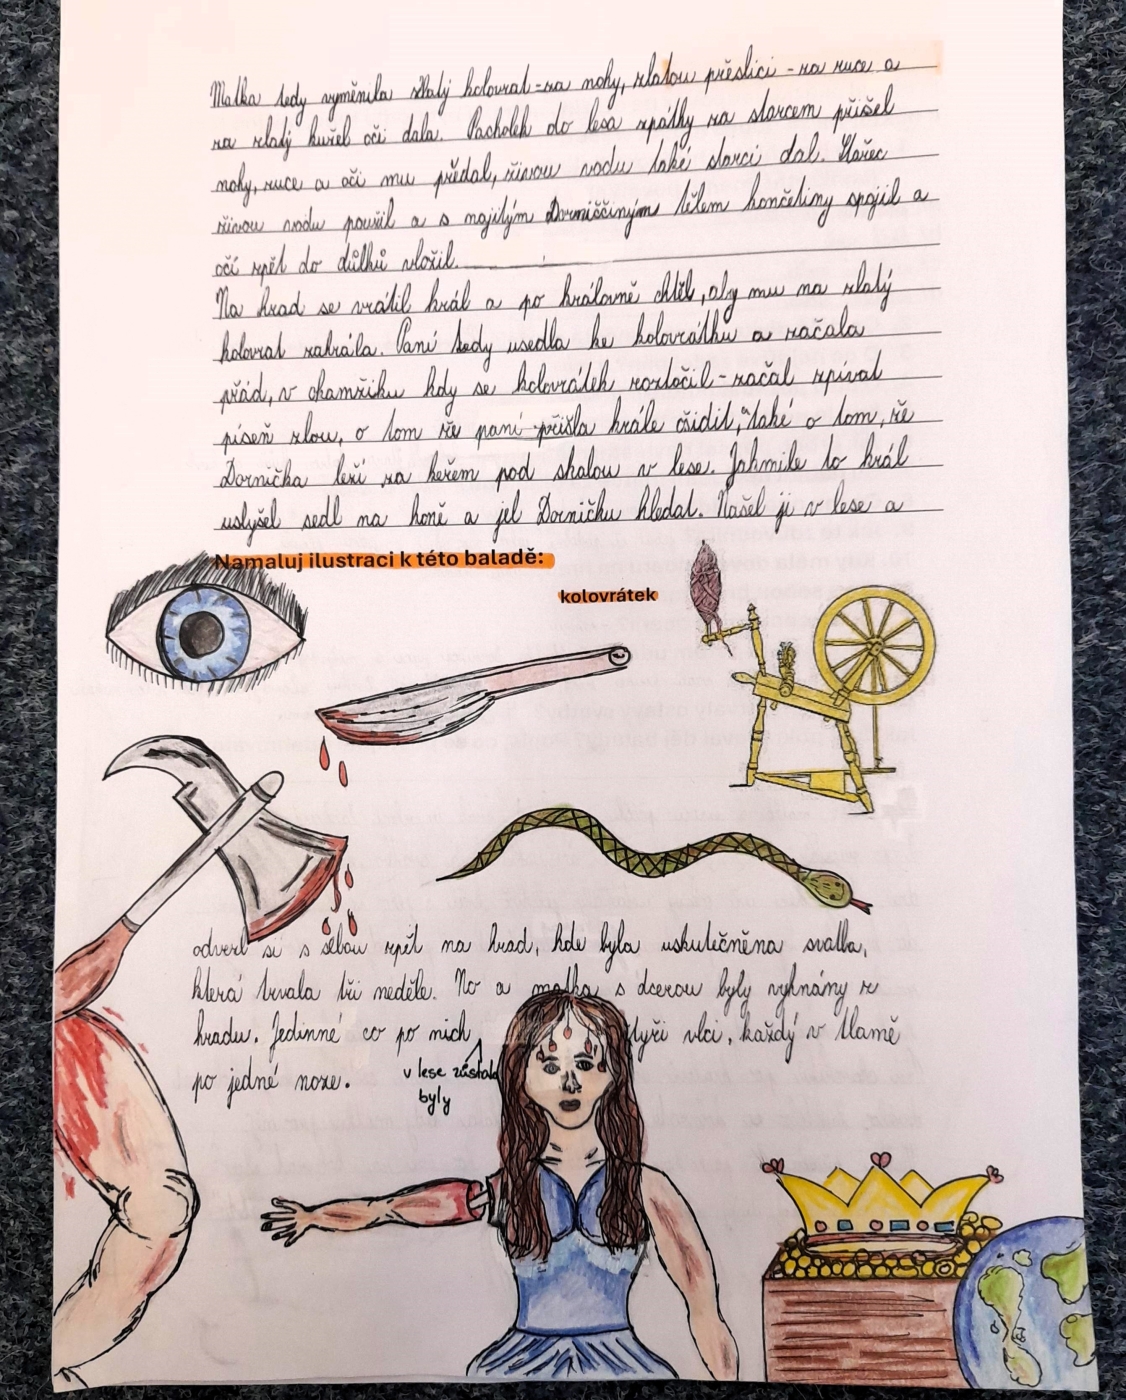 Matka tedy vyměnila zlatý kolovrat - za nohy, zlatou přeslici - za ruce a
za zlatý kužel oči dala. Pacholek do lesa zpátky za starcem přišel
nohy, ruce a oči mu předal, živou vodu také starci dal. Stařec
živou vodu použil a s Dorniččiným tělem končetiny spojil a
oči zpět do důlků vložil.
Na hrad se vrátil král a po královně chtěl, aby mu na zlatý
kolovrat zahrála. Paní tedy usedla ke kolovrátku a začala
přád, v okamžiku kdy se kolovrátek roztočil - začal zpívat
píseň zlou, o tom že paní přišla krále ošidit, a také o tom, že
Dornička leží za keřem pod skalou v lese. Jakmile to král
uslyšel sedl na koně a jel Dorničku hledat. Našel ji v lese a
Namaluj ilustraci k této baladě:
kolovrátek
odvezl si s sebou zpět na hrad, kde byla uskutečněna svatba,
která trvala tři neděle. No a matka s dcerou byly vyhnány z
hradu. Jedinné co po nich tyři vlci, každý v tlamě
v lese zůstalo
byly
po jedné noze.